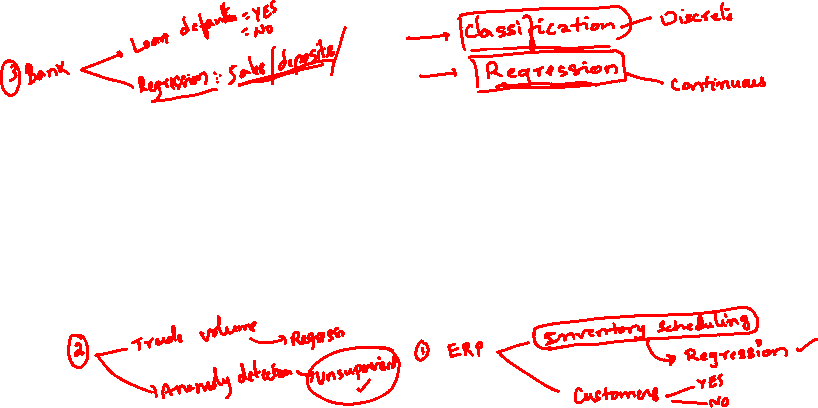 ③ Bank
Loan default = YES
= NO
Regression : Sales/deposits/
Classification
Discrete
Regression
Continuous
②
Trade volume → Regressn
Anamoly detection → Unsupervised ✓
① ERP
Inventory Scheduling
→ Regression ✓
Customers
YES
NO